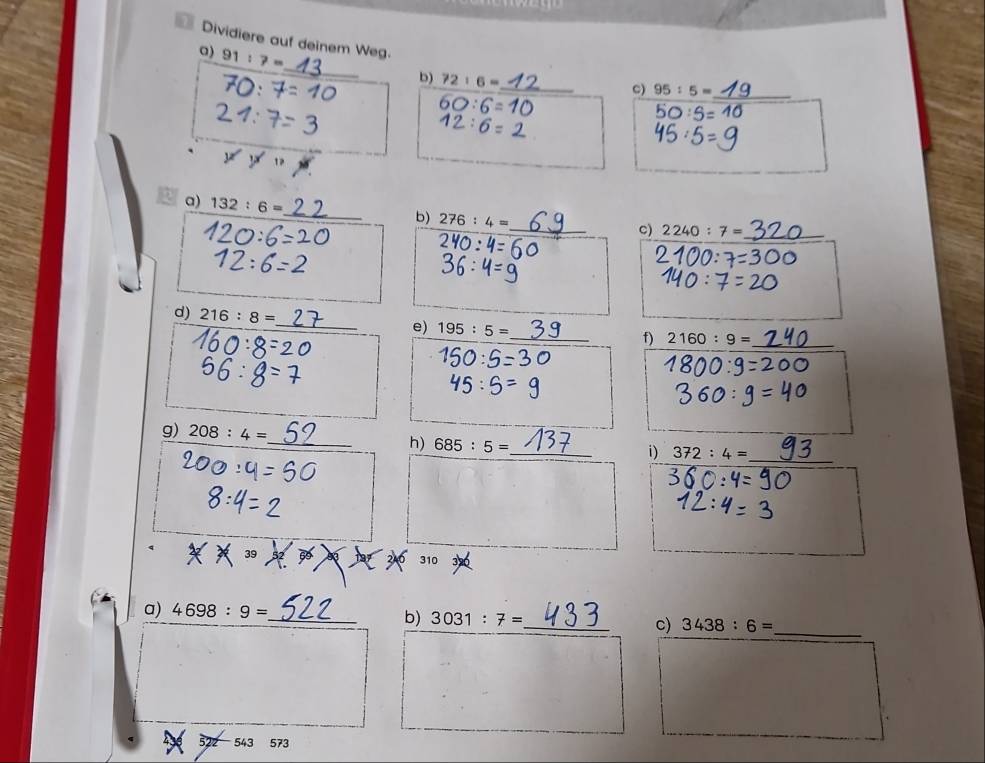 1 Dividiere auf deinem Weg.
a) 91 : 7 = 13
70 : 7 = 10
21 : 7 = 3
b) 72 : 6 = 12
60 : 6 = 10
12 : 6 = 2
c) 95 : 5 = 19
50 : 5 = 10
45 : 5 = 9
17
a) 132 : 6 = 22
120 : 6 = 20
12 : 6 = 2
b) 276 : 4 = 69
240 : 4 = 60
36 : 4 = 9
c) 2240 : 7 = 320
2100 : 7 = 300
140 : 7 = 20
d) 216 : 8 = 27
160 : 8 = 20
56 : 8 = 7
e) 195 : 5 = 39
150 : 5 = 30
45 : 5 = 9
f) 2160 : 9 = 240
1800 : 9 = 200
360 : 9 = 40
g) 208 : 4 = 52
200 : 4 = 50
8 : 4 = 2
h) 685 : 5 = 137
i) 372 : 4 = 93
360 : 4 = 90
12 : 4 = 3
39 52 69 93 137 240 310 320
a) 4698 : 9 = 522
b) 3031 : 7 = 433
c) 3438 : 6 =
433 522 543 573